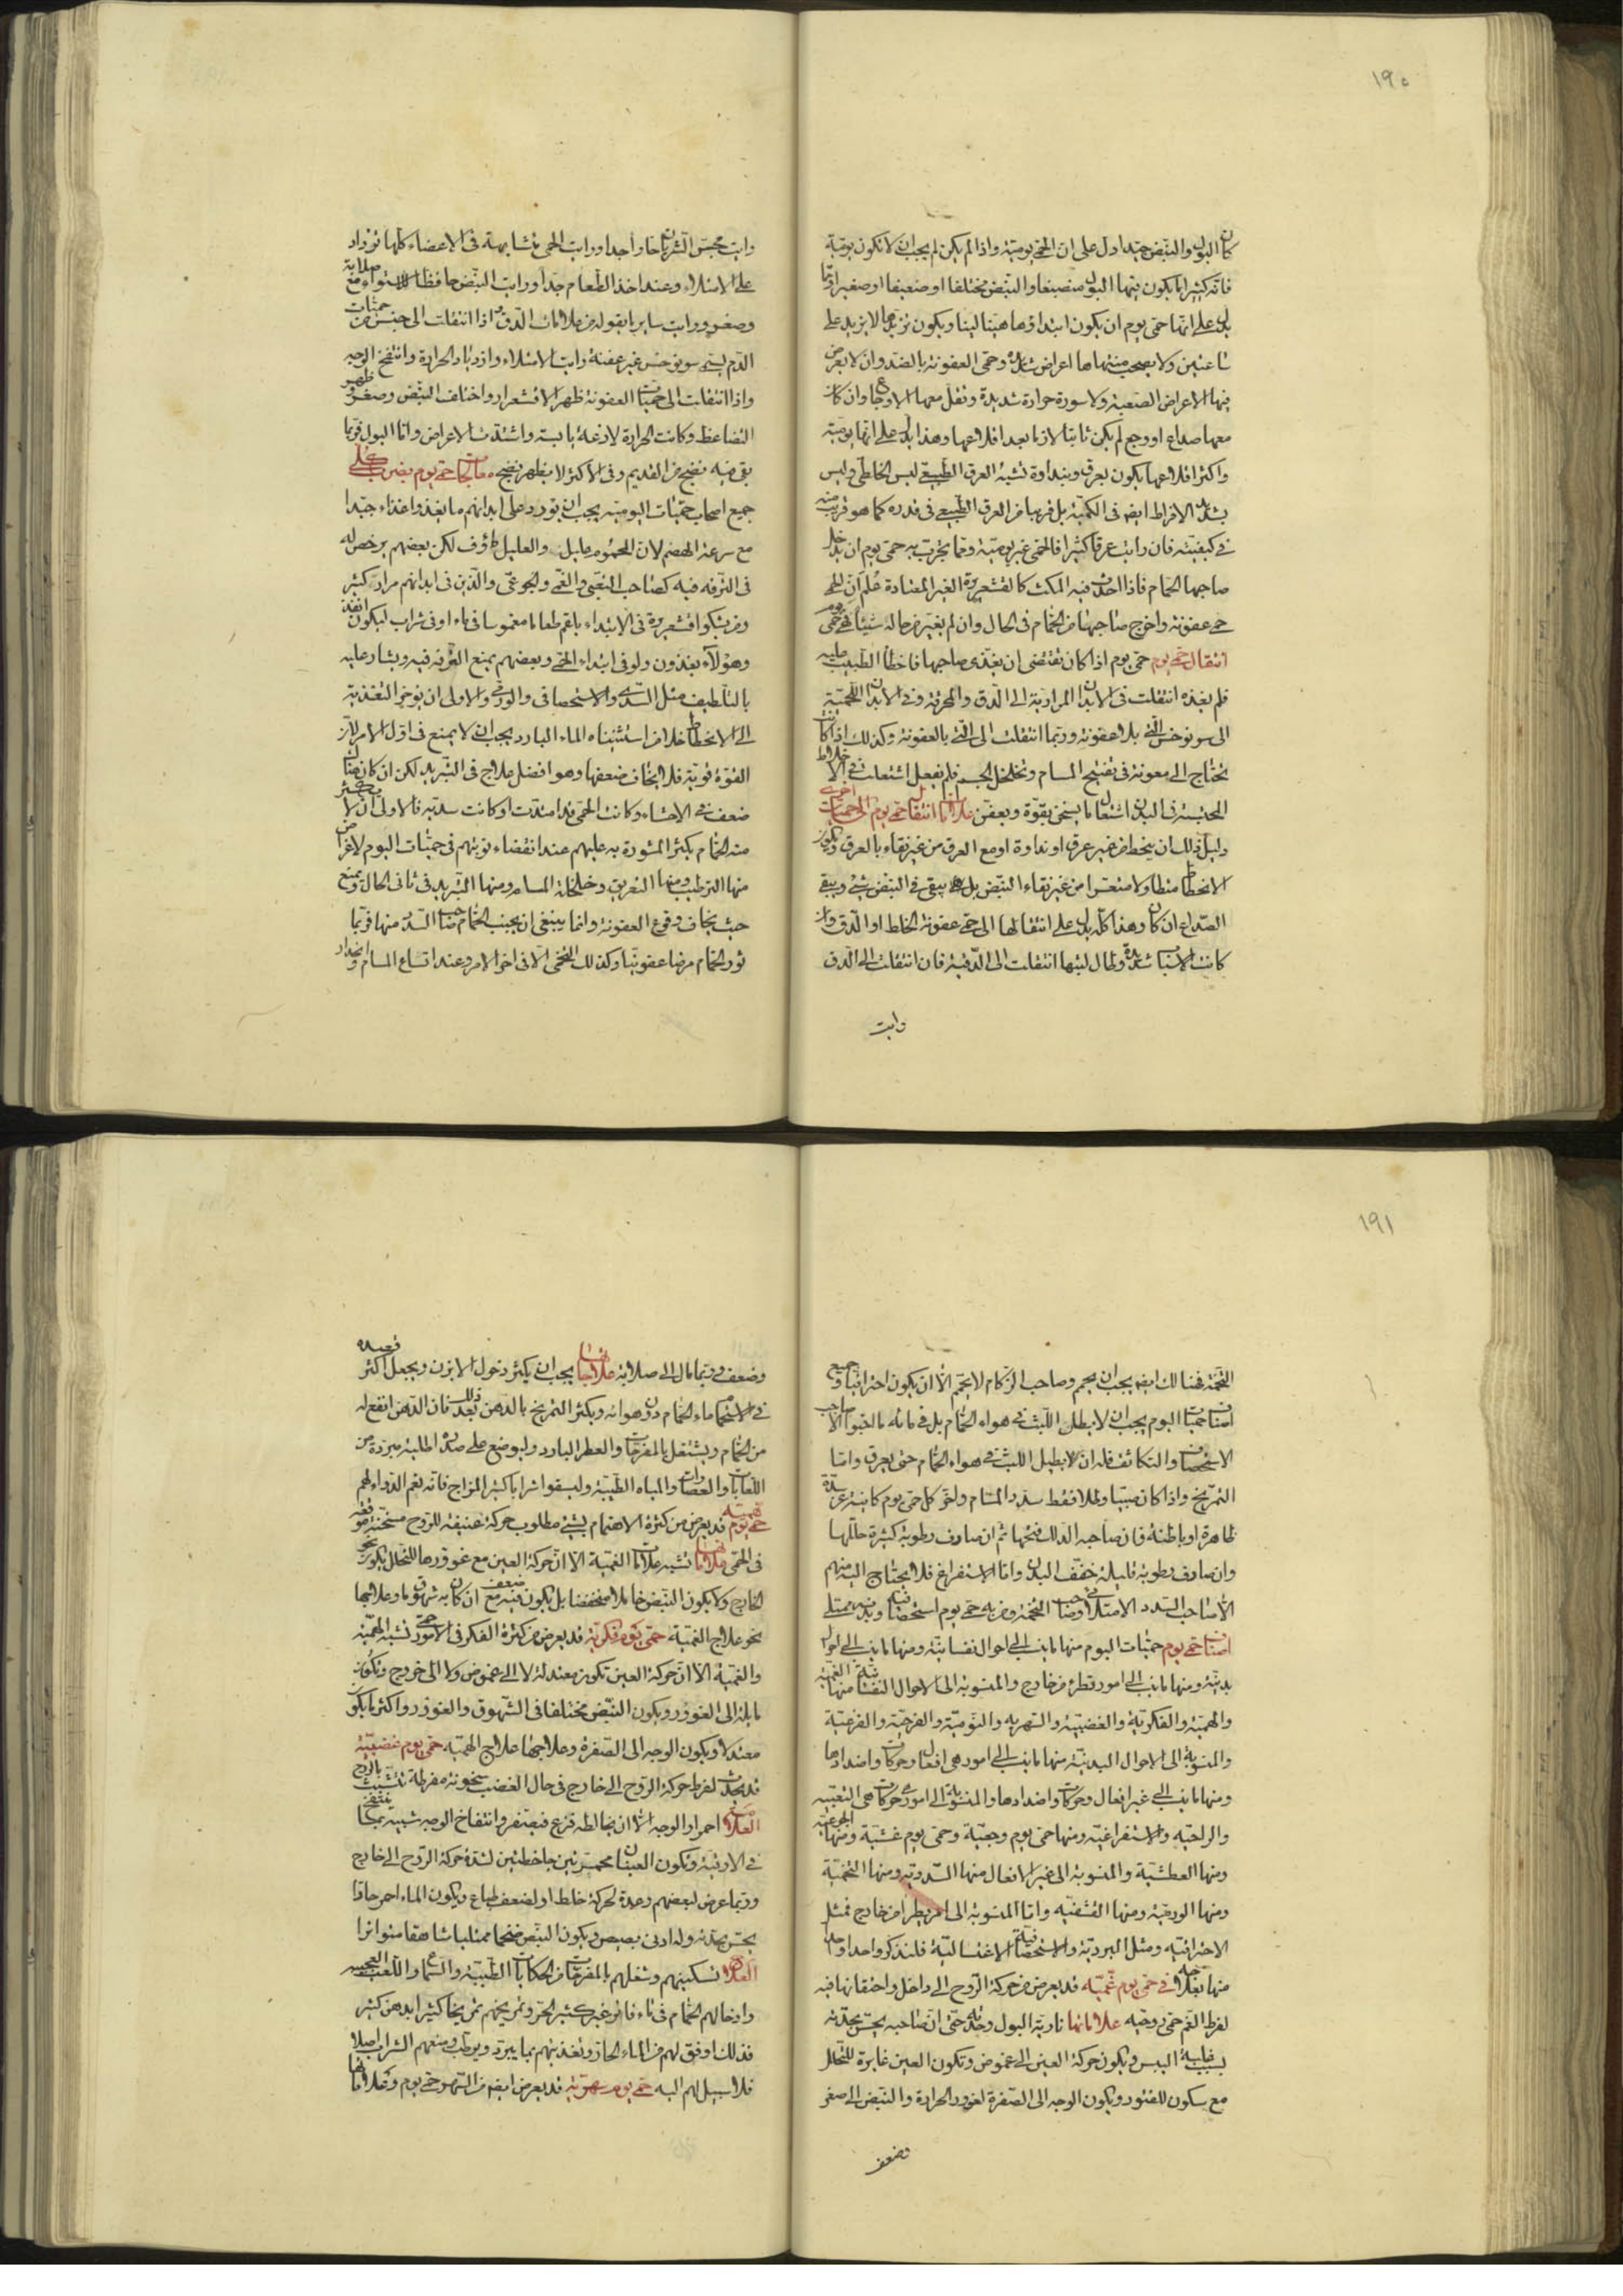 ١٩٠
كان البول والنبض جيدا دل على ان الحمى يومية واذا لم يكن لم يجب ان لا تكون يومية
فانه كثيرا ما يكون فيها البول منصبغا والنبض مختلفا او ضعيفا او صغيرا ومما
يدل على انها حمى يوم ان يكون ابتداؤها هينا لينا ويكون تزيدها لا يزيد على
ساعتين ولا يصحب منتهاها اعراض شديدة وحمى العفونة بالضد وان لا يعرض
فيها الاعراض الصعبة ولا سورة حرارة شديدة وتقل معها الاوجاع وان كان
معها صداع او وجع لم يكن ثابتا لازما بعد اقلاعها وهذا يدل على انها يومية
واكثر اقلاعها يكون بعرق وبنداوة تشبه العرق الطبيعي ليس الخاطي وليس
بشديد الافراط ايضا في الكمية بل قريبا من العرق الطبيعي في قدره كما هو قريب منه
في كيفيته فان رايت عرقا كثيرا فالحمى غير يومية ومما يجرب به حمى يوم ان يدخل
صاحبها الحمام فاذا احدث فيه المكث كالقشعريرة الغير المعتادة علم ان الحمى
حمى عفونة واخرج صاحبها من الحمام في الحال وان لم يغير من حاله شيئا فهي حمى يوم
انتقال حمى يوم حمى يوم اذا كان تقتضي ان يغذى صاحبها فاخطأ الطبيب عليه
فلم يغذه انتقلت في الابدان المرارية الى الدق والمحرقة وفي الابدان اللحمية
الى سونوخس التي بلا عفونة وربما انتقلت الى التي بالعفونة وكذلك اذا كانت
تحتاج الى معونة في تفتيح المسام وتخلخل الجسم فلم يفعل اشتعلت في الاخلاط
المحتبسة في البدن اشتعالا يسخن بقوة ويعفن علامات انتقال حمى يوم الى حميات اخرى
دليل ذلك ان ينحط من غير عرق او نداوة او مع العرق من غير نقاء بالعرق ويكون
الانحطاط متطاولا متعسرا من غير نقاء النبض بل يبقى في النبض شيء ويبقى
الصداع ان كان وهذا كله يدل على انتقالها الى حمى عفونة الخلط او الدق وان
كانت الاسباب شديدة وطال لبثها انتقلت الى الدقية فان انتقلت الى الدق
وايت
وايت مجس الشريان حارا جدا ورايت الحمى متشابهة في الاعضاء كلها تزداد
على الامتلاء وعند اخذ الطعام جدا ورايت النبض حافظا للاستواء مع صلابة
وصغر ورايت ساير ما يقوله من علامات الدق واذا انتقلت الى جنس من حميات
الدم ليسمى سونوخس غير عفنة رايت الامتلاء وازدياد الحرارة وانتفخ الوجه
واذا انتقلت الى حميات العفونة ظهر الاقشعرار واختلف النبض وصغر وظهر
التضاغط وكانت الحرارة لاذعة يابسة واشتدت الاعراض واما البول فربما
بقي فيه نضج من القديم وفي الاكثر لا يظهر نضج معالجات حمى يوم بضرب كلي
جميع اصحاب حميات اليومية يجب ان يورد على ابدانهم ما يغذو غذاء جيدا
مع سرعة الهضم لان المحموم عليل والعليل مأوف لكن بعضهم يرخص له
في الترفه فيه كصاحب التعبي والغمي والجوعي والذين في ابدانهم مرار كثير
ومن يشكو اقشعريرة في الابتداء يلقم طعاما مغموسا في ماء او في شراب ليكون انفذ
وهؤلاء يغذون ولو في ابتداء الحمى وبعضهم يمنع الترفه فيه ويشار عليه
بالتلطيف مثل السددي والاستحصافي والورمي والاولى ان يؤخر التغذية
الى الانحطاط خلا من استثنيناه الماء البارد يجب ان لا يمنع في اول الامر لان
القوة قوية فلا يخاف ضعفها وهو افضل علاج في التبريد لكن ان كان هناك
ضعف في الاحشاء وكانت الحمى قد امتدت او كانت سددية فالاولى ان لا يكثر
منه الحمام يكثر المشورة به عليهم عند انقضاء نوبتهم في حميات اليوم لاغراض
منها الترطيب ومنها التعريق وخلخلة المسام ومنها التبريد في ثاني الحال ويمنع
حيث يخاف وقوع العفونة وانما ينبغي ان يجنب الحمام صاحب السدد منها فربما
ثور الحمام مرضا عفونيا وكذلك التخمي الا في اخر الامر وعند اتساع المسام وانحدار
١٩١
التخمة فهنالك ايضا يجب ان يحم وصاحب الزكام لا يحم الا ان يكون احتراقيا وجميع
اصناف حميات اليوم يجب ان لا يطيل اللبث في هواء الحمام بل في مائه ما احبوا الا صاحب
الاستحصاف والتكاثف فله ان يطيل اللبث في هواء الحمام حتى يعرق واما
التمريخ واذا كان صبيا وطلا فقط سدد المسام ولحق كل حمى يوم كاينة عن سدة
ظاهرة او باطنة فان صاحبه الدلك فتحها ثم ان صادف رطوبة كثيرة حللها
وان صادف رطوبة قليلة خفف البدن واما الاستفراغ فلا يحتاج اليه منهم
الا صاحب السدد الامتلائي وصاحب التخمة ومن به حمى يوم استحصافية وبدنه ممتلئ
اصناف حمى يوم حميات اليوم منها ما ينسب الى احوال نفسانية ومنها ما ينسب الى احوال
بدنية ومنها ما ينسب الى امور تطرأ من خارج والمنسوبة الى الاحوال النفسانية منها الغمية
والهمية والفكرية والغضبية والسهرية والنومية والفرحية والفزعية
والمنسوبة الى الاحوال البدنية منها ما ينسب الى امور هي افعال وحركات واضدادها
ومنها ما ينسب الى غير افعال وحركات واضدادها والمنسوبة الى امور هي حركات هي التعبية
والراحية والاستفراغية ومنها حمى يوم وجعية وحمى يوم غشية ومنها الجوعية
ومنها العطشية والمنسوبة الى غير الافعال منها السددية ومنها التخمية
ومنها الورمية ومنها القشفية واما المنسوبة الى امر يطرأ من خارج فمثل
الاحتراقية ومثل البردية والاستحصافية الاغتسالية فلنذكر واحدا واحدا
منها بعلاجه في حمى يوم غمية قد يعرض من حركة الروح الى داخل واحتقانها فيه
لفرط الغم حمى روحية علاماتها نارية البول وحدته حتى ان صاحبه يحس بحدته
بسبب غلبة اليبس ويكون حركة العين الى غموض وتكون العين غايرة للتحلل
مع سكون للفتور ويكون الوجه الى الصفرة لغور الحرارة والنبض الى صغر
وضعف
وضعف وربما مال الى صلابة علاجاتها يجب ان يكثر دخول الابزن ويجعل اكثر قصده
في الاستحمام ماء الحمام دون هوائه ويكثر التمريخ بالدهن بعد ذلك فان الدهن انفع له
من الحمام ويشتغل بالمفرحات والعطر البارد وليوضع على صدره اطلية مبردة من
اللعابات والعصارات والمياه الطيبة وليسقوا شرابا كثير المزاج فانه نعم الدواء لهم
حمى يوم همية قد يعرض من كثرة الاهتمام بشيء مطلوب حركة عنيفة للروح مسخنة موقعة
في الحمى علاماتها تشبه علامات الغمية الا ان حركة العين مع غورها للتحلل يكون نحو
الخارج ولا يكون النبض خاملا منخفضا بل يكون فيه مع ضعف ان كان به شهوق ما وعلاجها
نحو علاج الغمية حمى يوم فكرية قد يعرض من كثرة الفكر في الامور حمى تشبه الهمية
والغمية الا ان حركة العين تكون معتدلة لا الى غموض ولا الى خروج وتكون
مايلة الى الغوور ويكون النبض مختلفا في الشهوق والغوور واكثر ما يكون
معتدلا ويكون الوجه الى الصفرة وعلاجها علاج الهمية حمى يوم غضبية
قد يحدث لفرط حركة الروح الى خارج في حال الغضب سخونة مفرطة تتشبث بالروح
العلامات احمرار الوجه الا ان يخالطه فزع فيصفر وانتفاخ الوجه شبيه بما ينتفخ
في الاورية وتكون العينان محمرتين جاحظتين لشدة حركة الروح الى خارج
وربما عرض لبعضهم رعدة لحركة خلط او لضعف طباع ويكون الماء احمر حادا
يحس بحدته وله ادنى بصيص ويكون النبض ضخما ممتليا شاهقا متواترا
العلاج تسكينهم وشغلهم بالمفرحات من الحكايات الطيبة والسماع واللعب العجيب
وادخالهم الحمام في ماء فاتر غير كثير الحر وتمريخهم تمريخا كثيرا بدهن كثير
فذلك اوفق لهم من الماء الحار وتغذيتهم بما يبرد ويرطب ومنعهم الشراب اصلا
فلا سبيل لهم اليه حمى يوم سهرية قد يعرض ايضا من السهر حمى يوم وعلاماتها